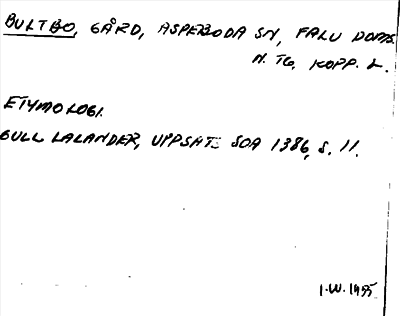 BULTBO, GÅRD, ASPEBODA SN, FALU DOMS.
N. TG. KOPP. L.
ETYMOLOGI.
GULL LALANDER, UPPSATS SOA 1386, S. 11.
I.W. 1995